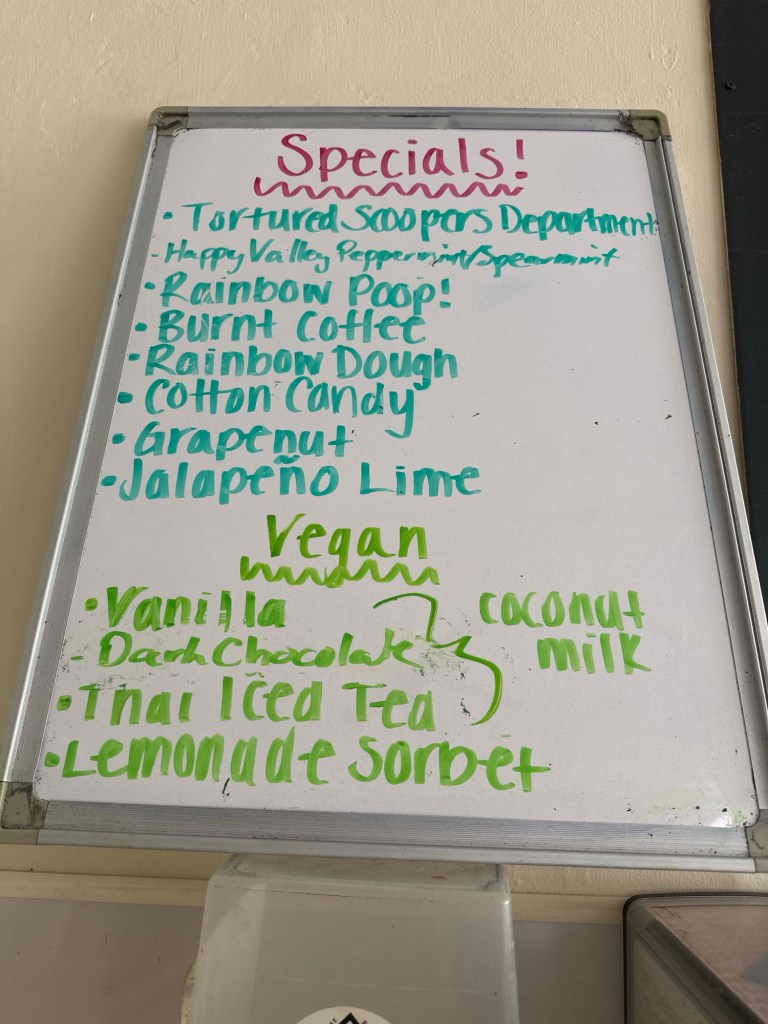 Specials!
• Tortured Scoopers Department
- Happy Valley Peppermint/Spearmint
• Rainbow Poop!
• Burnt Coffee
• Rainbow Dough
• Cotton Candy
• Grapenut
• Jalapeño Lime
Vegan
• Vanilla
- Dark Chocolate
• Thai Iced Tea
coconut
milk
• Lemonade Sorbet